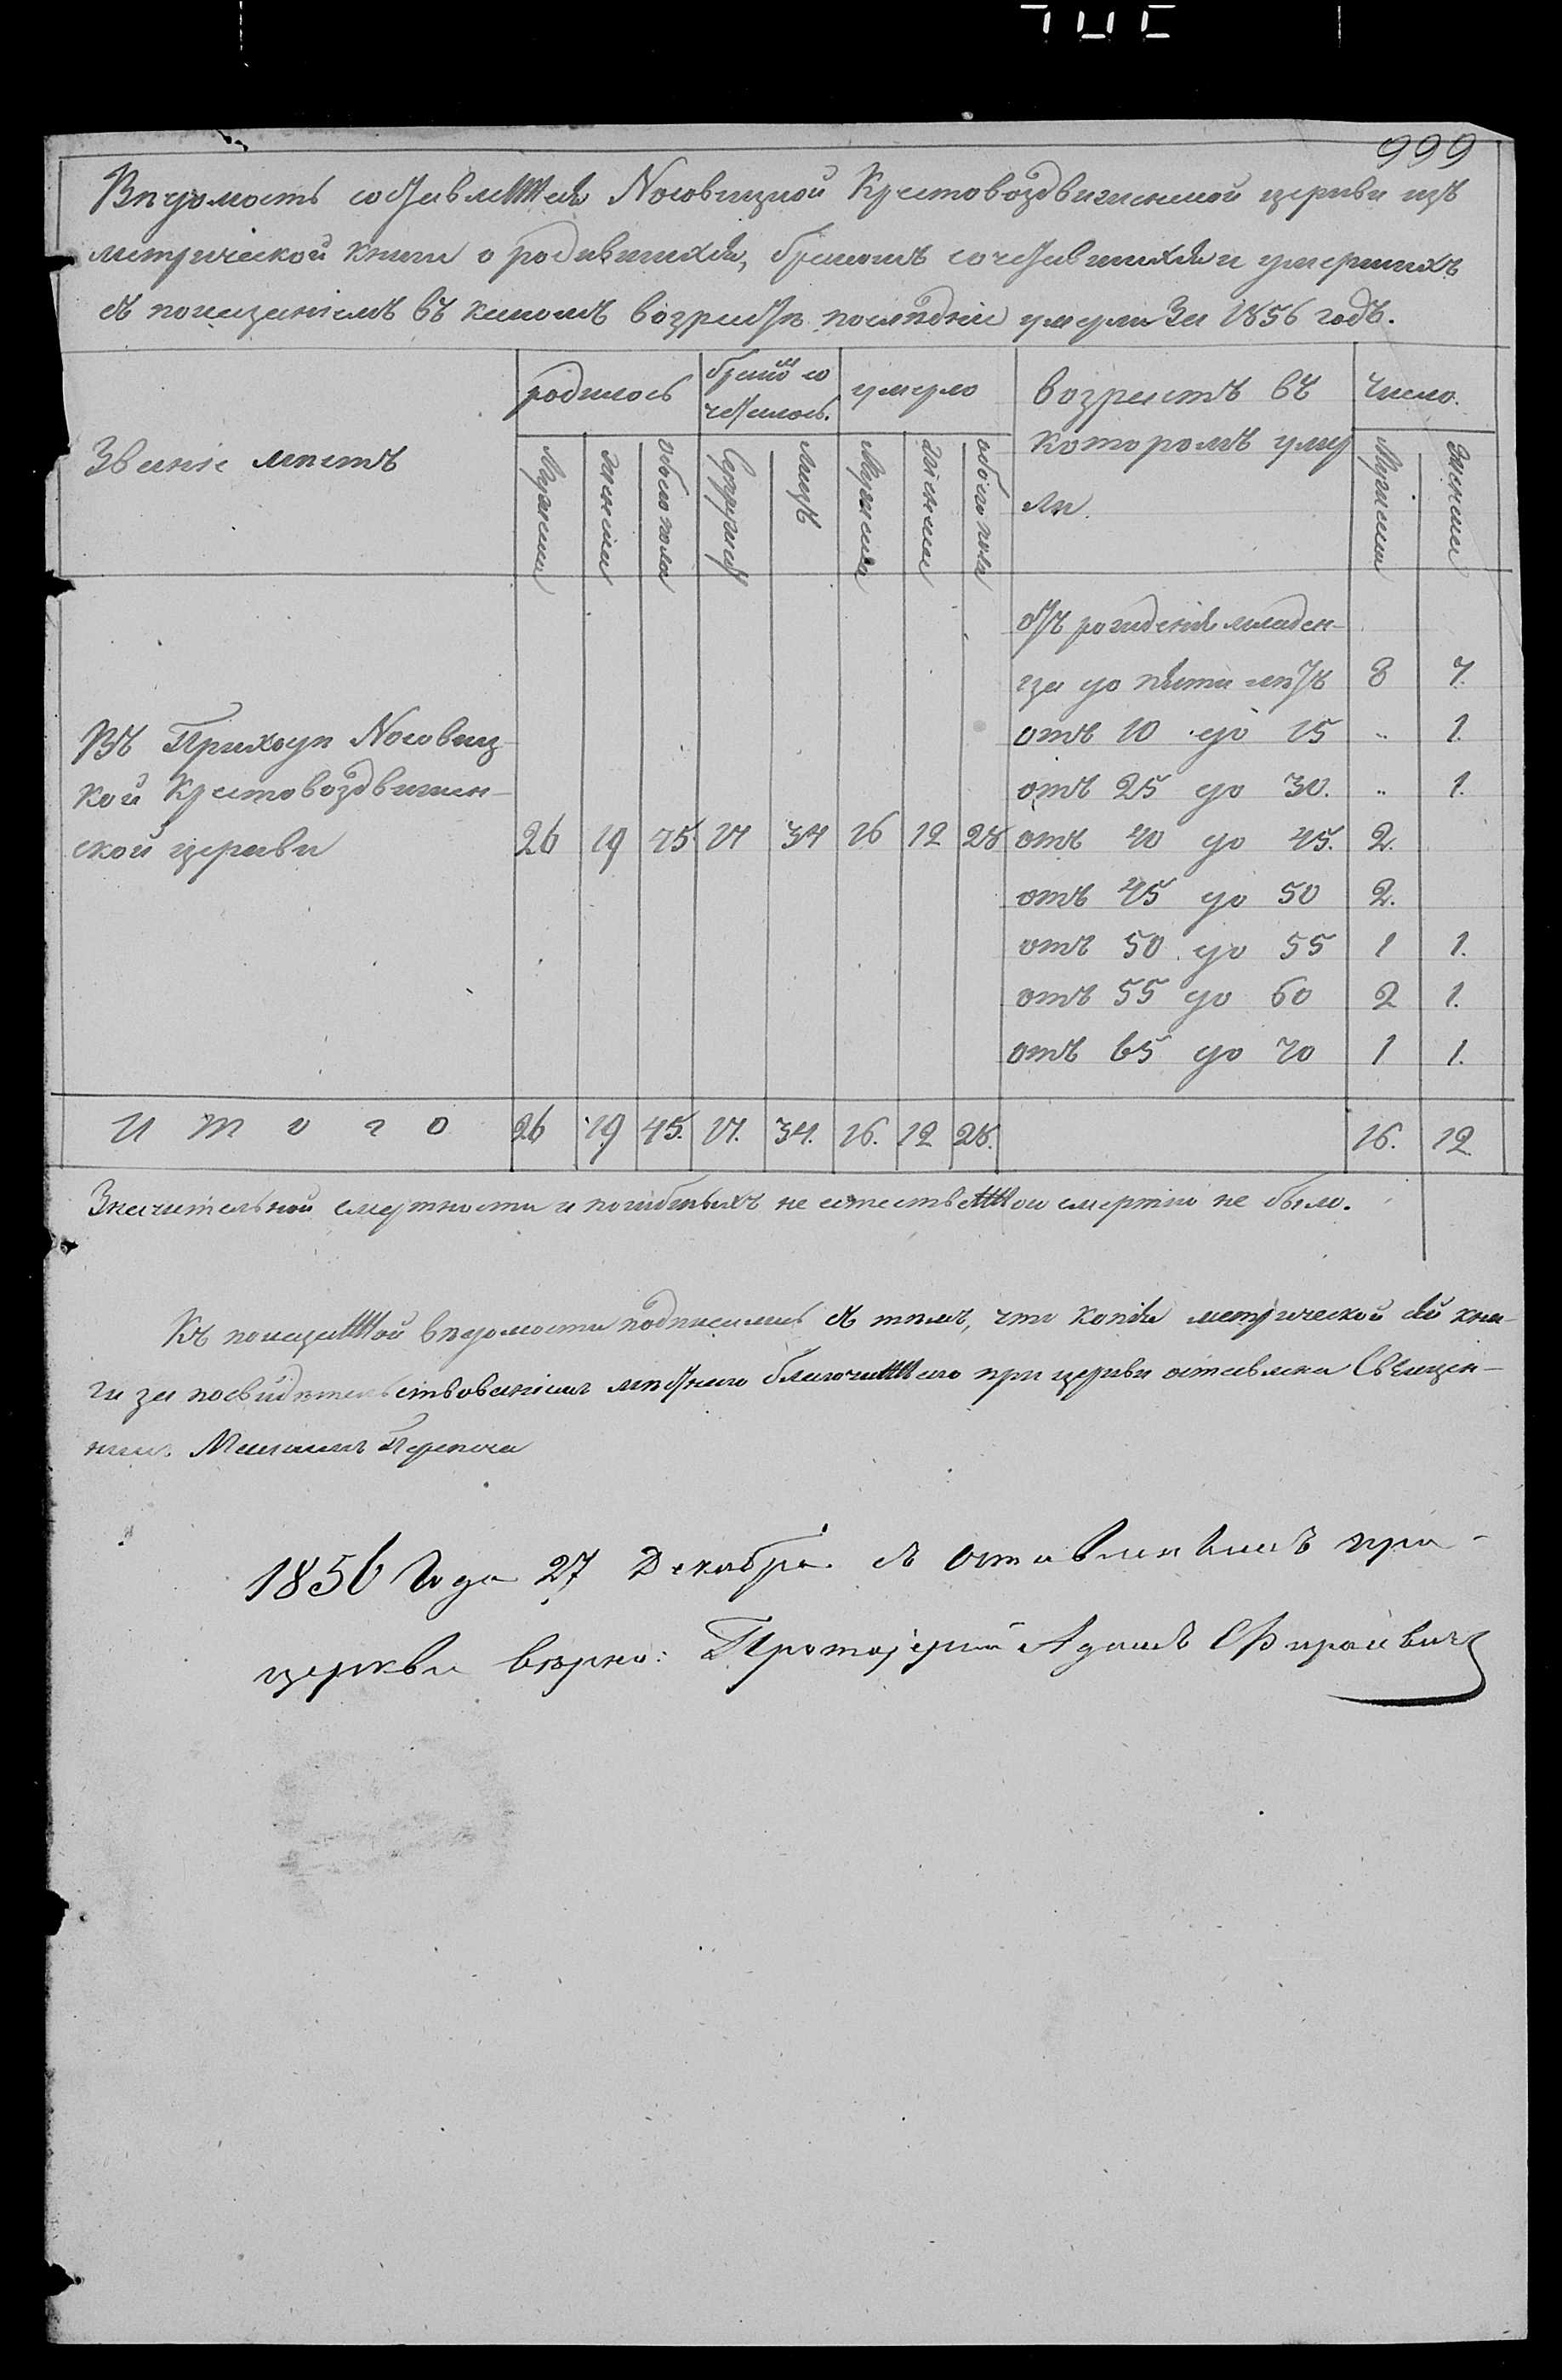 999
Вѣдомость составленная Носовицкой Крестовоздвиженской церкви изъ
метрической книги о родившихся, бракомъ сочетавшихся и умершихъ
съ показаніемъ въ какомъ возрастѣ послѣдніе умерли За 1856 годъ.
Званіе мѣстъ
родилось
бракомъ со
четалось.
умерло
возрастъ въ
которомъ умер
ли.
Число.
Мужеска
женска
обоего пола
Супружествъ
лицъ
Мужеска
женска
обоего пола
Мужеска
Женска
отъ рожденія младен-
ца до пяти лѣтъ 8 7.
отъ 10 до 15 „ 1.
отъ 25 до 30. „ 1.
Въ Приходѣ Носовиц
кой Крестовоздвижен-
ской церкви 26 19 45. 17 34 16 12 28 отъ 40 до 45. 2.
отъ 45 до 50 2.
отъ 50 до 55 1 1.
отъ 55 до 60 2 1.
отъ 65 до 70 1 1.
И т о г о 26 19 45. 17. 34. 16. 12 28. 16. 12
Значительной смертности и погибшихъ не естественною смертію не было.
Къ показанной вѣдомости подписались съ тѣмъ, что копія метрической сей кни-
ги за посвидѣтельствованіемъ мѣстнаго благочиннаго при церкви оставлена Священ-
никъ
1856 Года 27 Декабря съ оставленіемъ при
церкви вѣрно: Протоіерей Адамъ